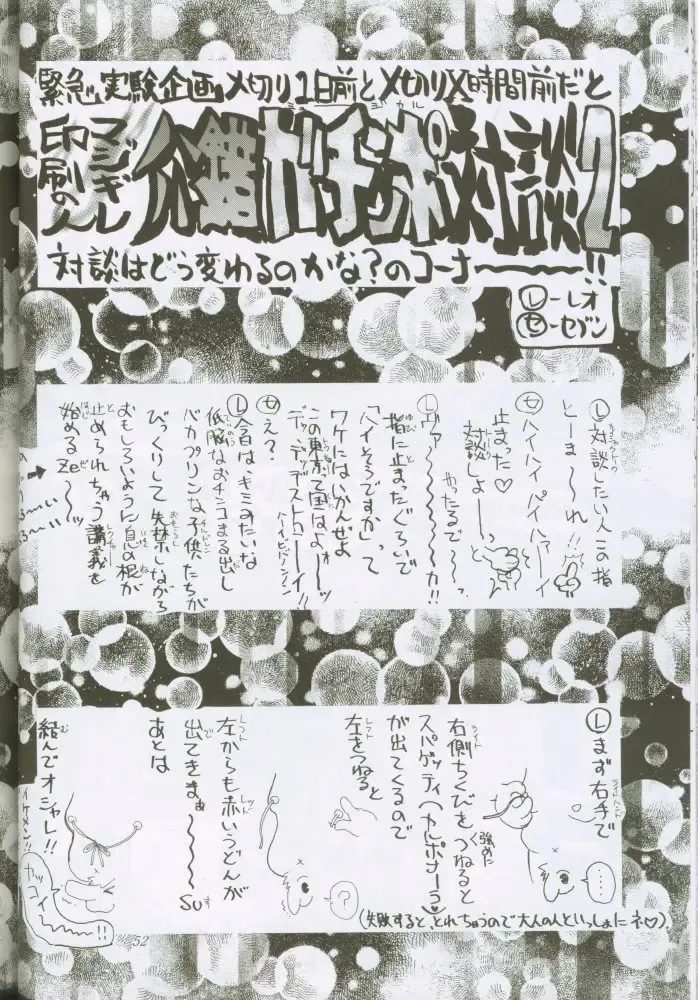 緊急実験企画〆切り1日前と〆切りX時間前だと
マジギレ
印刷の人
対談2
対談はどう変わるのかな?のコーナー〜〜〜!!
Ⓛーレオ
㋝ーセブン
Ⓛ対談したい人この指
と〜ま〜〜れ!!
㋝ハイハイハイハァーイ
止まった♡
対談しよ——っ
Ⓛヴァ〜〜〜〜カ!!
やったるで〜〜っ
指に止またぐらいで
「ハイそうですか」って
ワケにはいかんぜよ
この東京って国はよォ〜ッ
㋝え?
Ⓛ今日はキミみたいな
低脳なおチンコまる出し
バカプリンな子供たちが
びっくりして失禁しながら
おもしろいように息の根が
止められちゃう講義を
始めるZe〜〜ッ
Ⓛまず右手で
ライトハンド
右側ちくびをつねると
ライト
強めに
スパゲッティ(カルボナーラ♡)
が出てくるので
左をつねると
レフト
左からも赤いうどんが
レフト
レッド
出てきまぁ〜〜〜〜su
あとは
結んでオシャレ!!
イケメン!!
カッコイ〜〜〜!!
……
?
(失敗すると、とれちゃうので大人の人といっしょにネ♡)
52